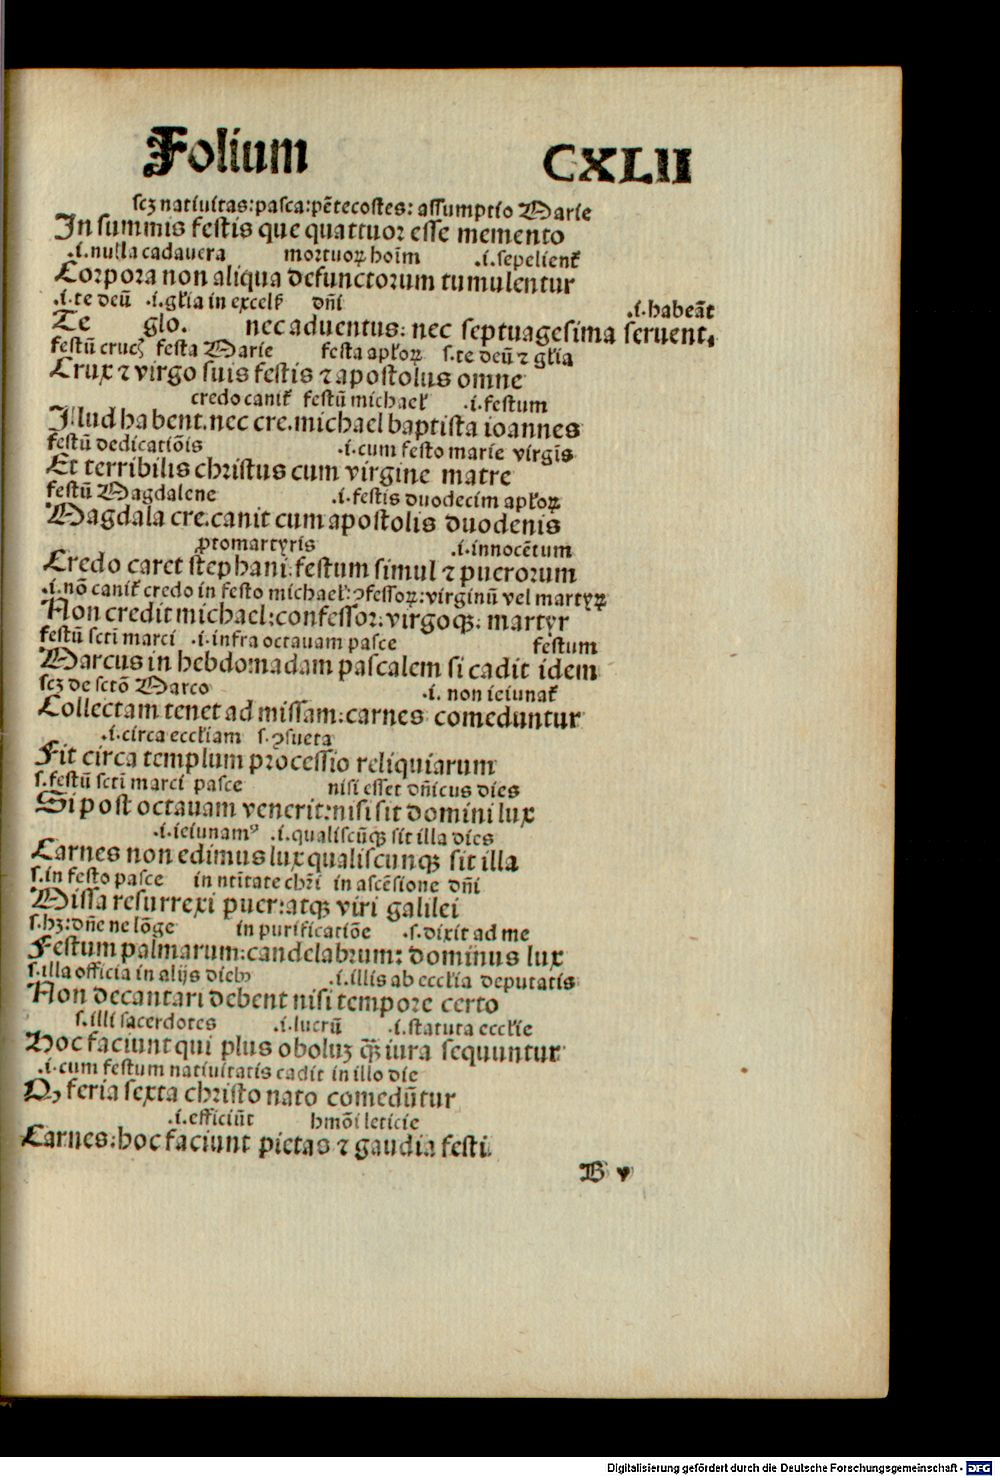 Folium CXLII
scꝫ natiuitas:pasca:pẽtecostes: assumptio Marie
In summis festis que quattuor esse memento
.i.nulla cadauera mortuoꝝ hoĩm .i.sepelient᷑
Corpora non aliqua defunctorum tumulentur
.i.te deũ .i.gl̃ia in excels᷑ dñi .i.habeãt
Te glo. nec aduentus: nec septuagesima seruent.
festũ cruc᷑ festa Marie festa apl̃oꝝ s.te deũ ⁊ gl̃ia
Crux ⁊ virgo suis festis ⁊ apostolus omne
credo canit᷑ festũ michael᷑ .i.festum
Illud habent.nec cre.michael baptista ioannes
festũ dedicatiõis .i.cum festo marie virgĩs
Et terribilis christus cum virgine matre
festũ Magdalene .i.festis duodecim apl̃oꝝ
Magdala cre.canit cum apostolis duodenis
ꝓtomartyris .i.innocẽtum
Credo caret stephani:festum simul ⁊ puerorum
.i.nõ canit᷑ credo in festo michael᷑:ↄfessoꝝ:virginũ vel martyꝝ
Non credit michael:confessor:virgoqꝫ: martyr
festũ scti marci .i.infra octauam pasce festum
Marcus in hebdomadam pascalem si cadit idem
scꝫ de sctõ Marco .i. non ieiunat᷑
Collectam tenet ad missam:carnes comeduntur
.i.circa eccl̃iam s.ↄsueta
Fit circa templum processio reliquiarum
s.festũ scti marci pasce nisi esset dñicus dies
Si post octauam venerit:nisi sit domini lux
.i.ieiunamꝰ .i.qualiscũqꝫ sit illa dies
Carnes non edimus lux qualiscunqꝫ sit illa
s.in festo pasce in nt̃itate chr̃i in ascẽsione dñi
Missa resurrexi puer:atqꝫ viri galilei
s.hꝫ:dñe ne lõge in purificatiõe .s.dixit ad me
Festum palmarum:candelabrum: dominus lux
s.illa officia in alijs dieb᷒ .i.illis ab eccl̃ia deputatis
Non decantari debent nisi tempore certo
s.illi sacerdotes .i.lucrũ .i.statuta eccl̃ie
Hoc faciunt qui plus oboluꝫ q̃ꝫ iura sequuntur
.i.cum festum natiuitatis cadit in illo die
Qꝫ feria sexta christo nato comedũtur
.i.efficiũt hmõi leticie
Carnes:hoc faciunt pietas ⁊ gaudia festi.
B v
Digitalisierung gefördert durch die Deutsche Forschungsgemeinschaft - DFG